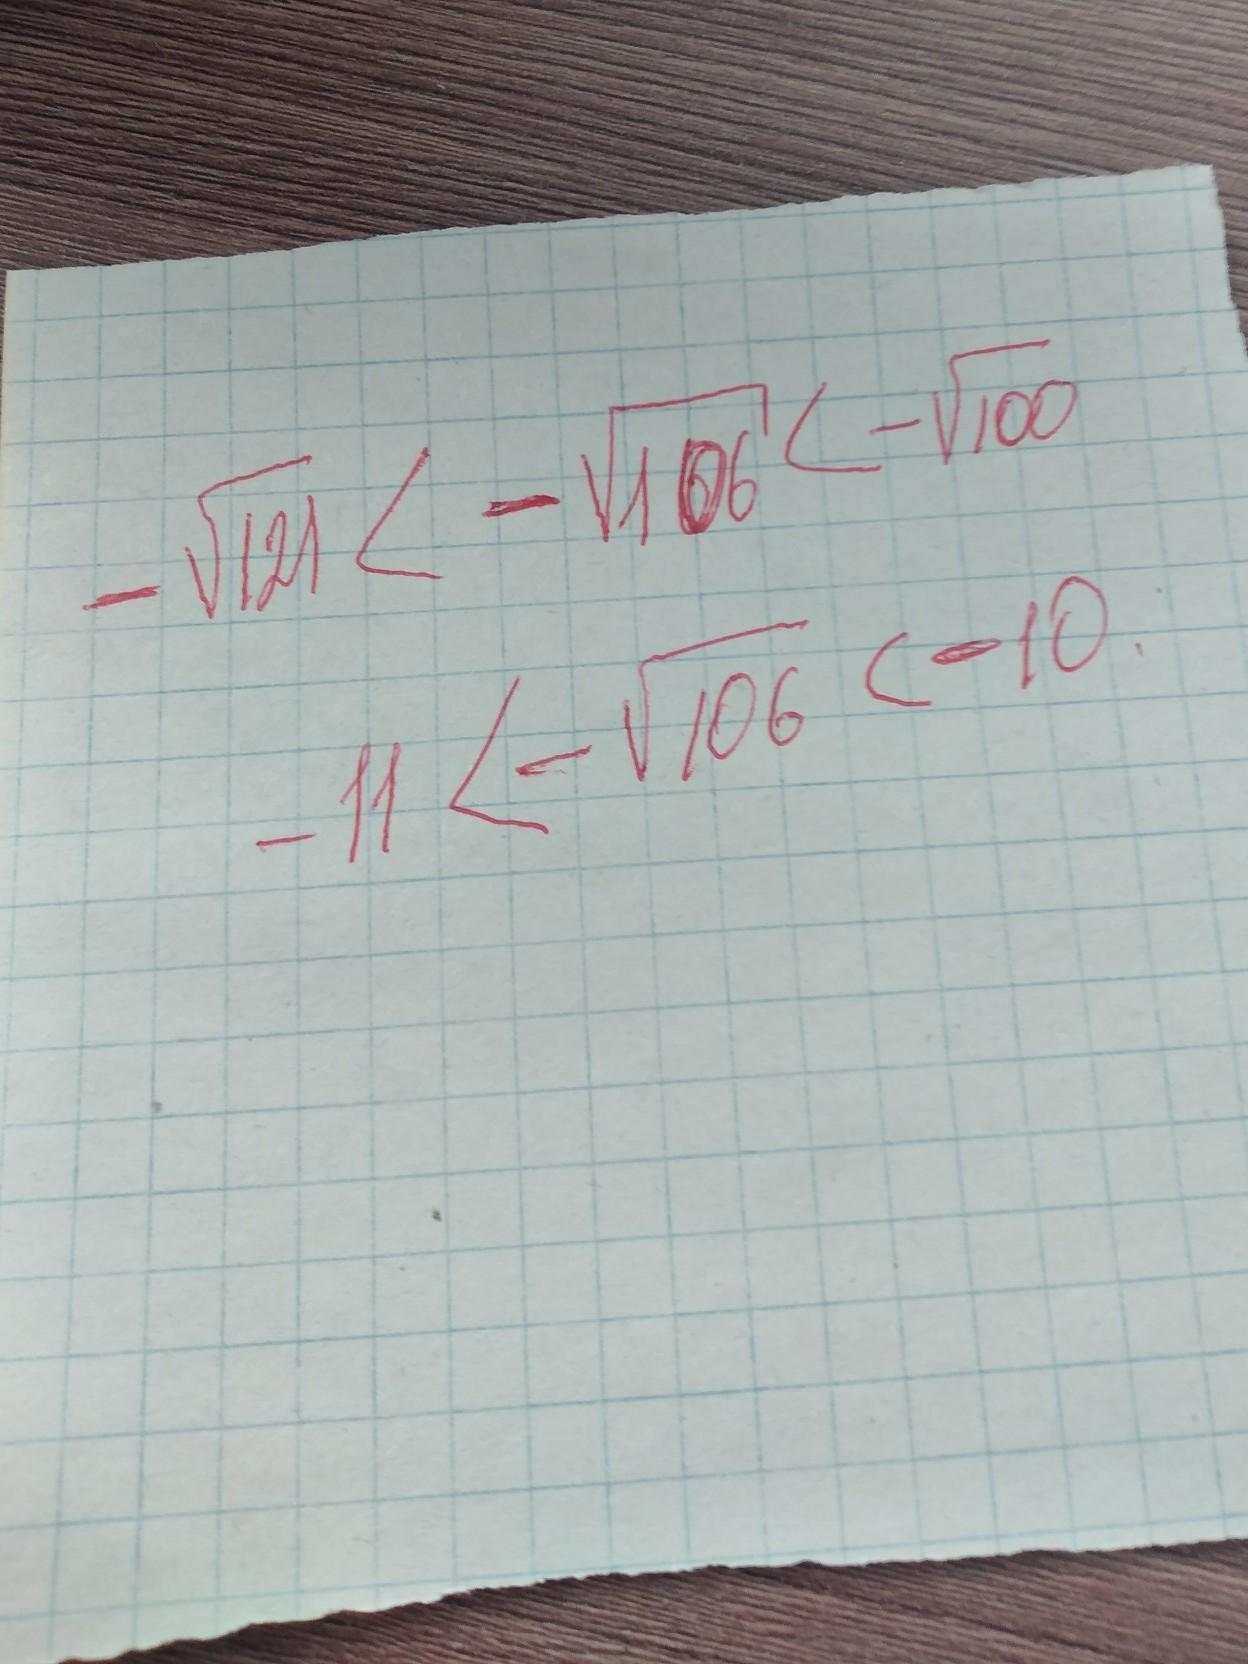 -√121 < -√106 < -√100
-11 < -√106 < -10.